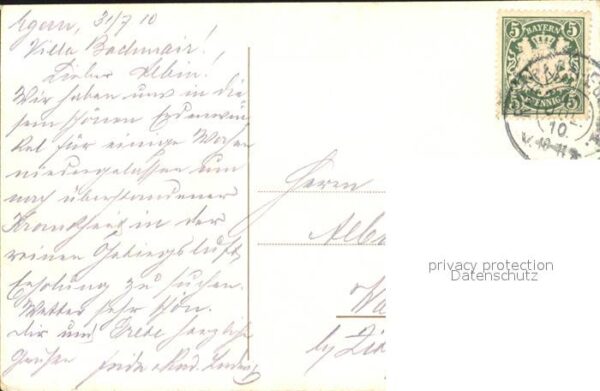 Egern, 31/7 10
Villa Bachmair!
Lieber Albin!
Wir haben uns in die=
sem schönen Erdenwin=
kel für einige Wochen
niedergelassen um
nach überstandener
Krankheit in der
reinen Gebirgsluft
Erholung zu suchen.
Wetter sehr schön.
Dir und Grete herzliche
Grüßen
5 BAYERN 5
5 PFENNIG 5
10.
Herrn
Albi
privacy protection
Datenschutz